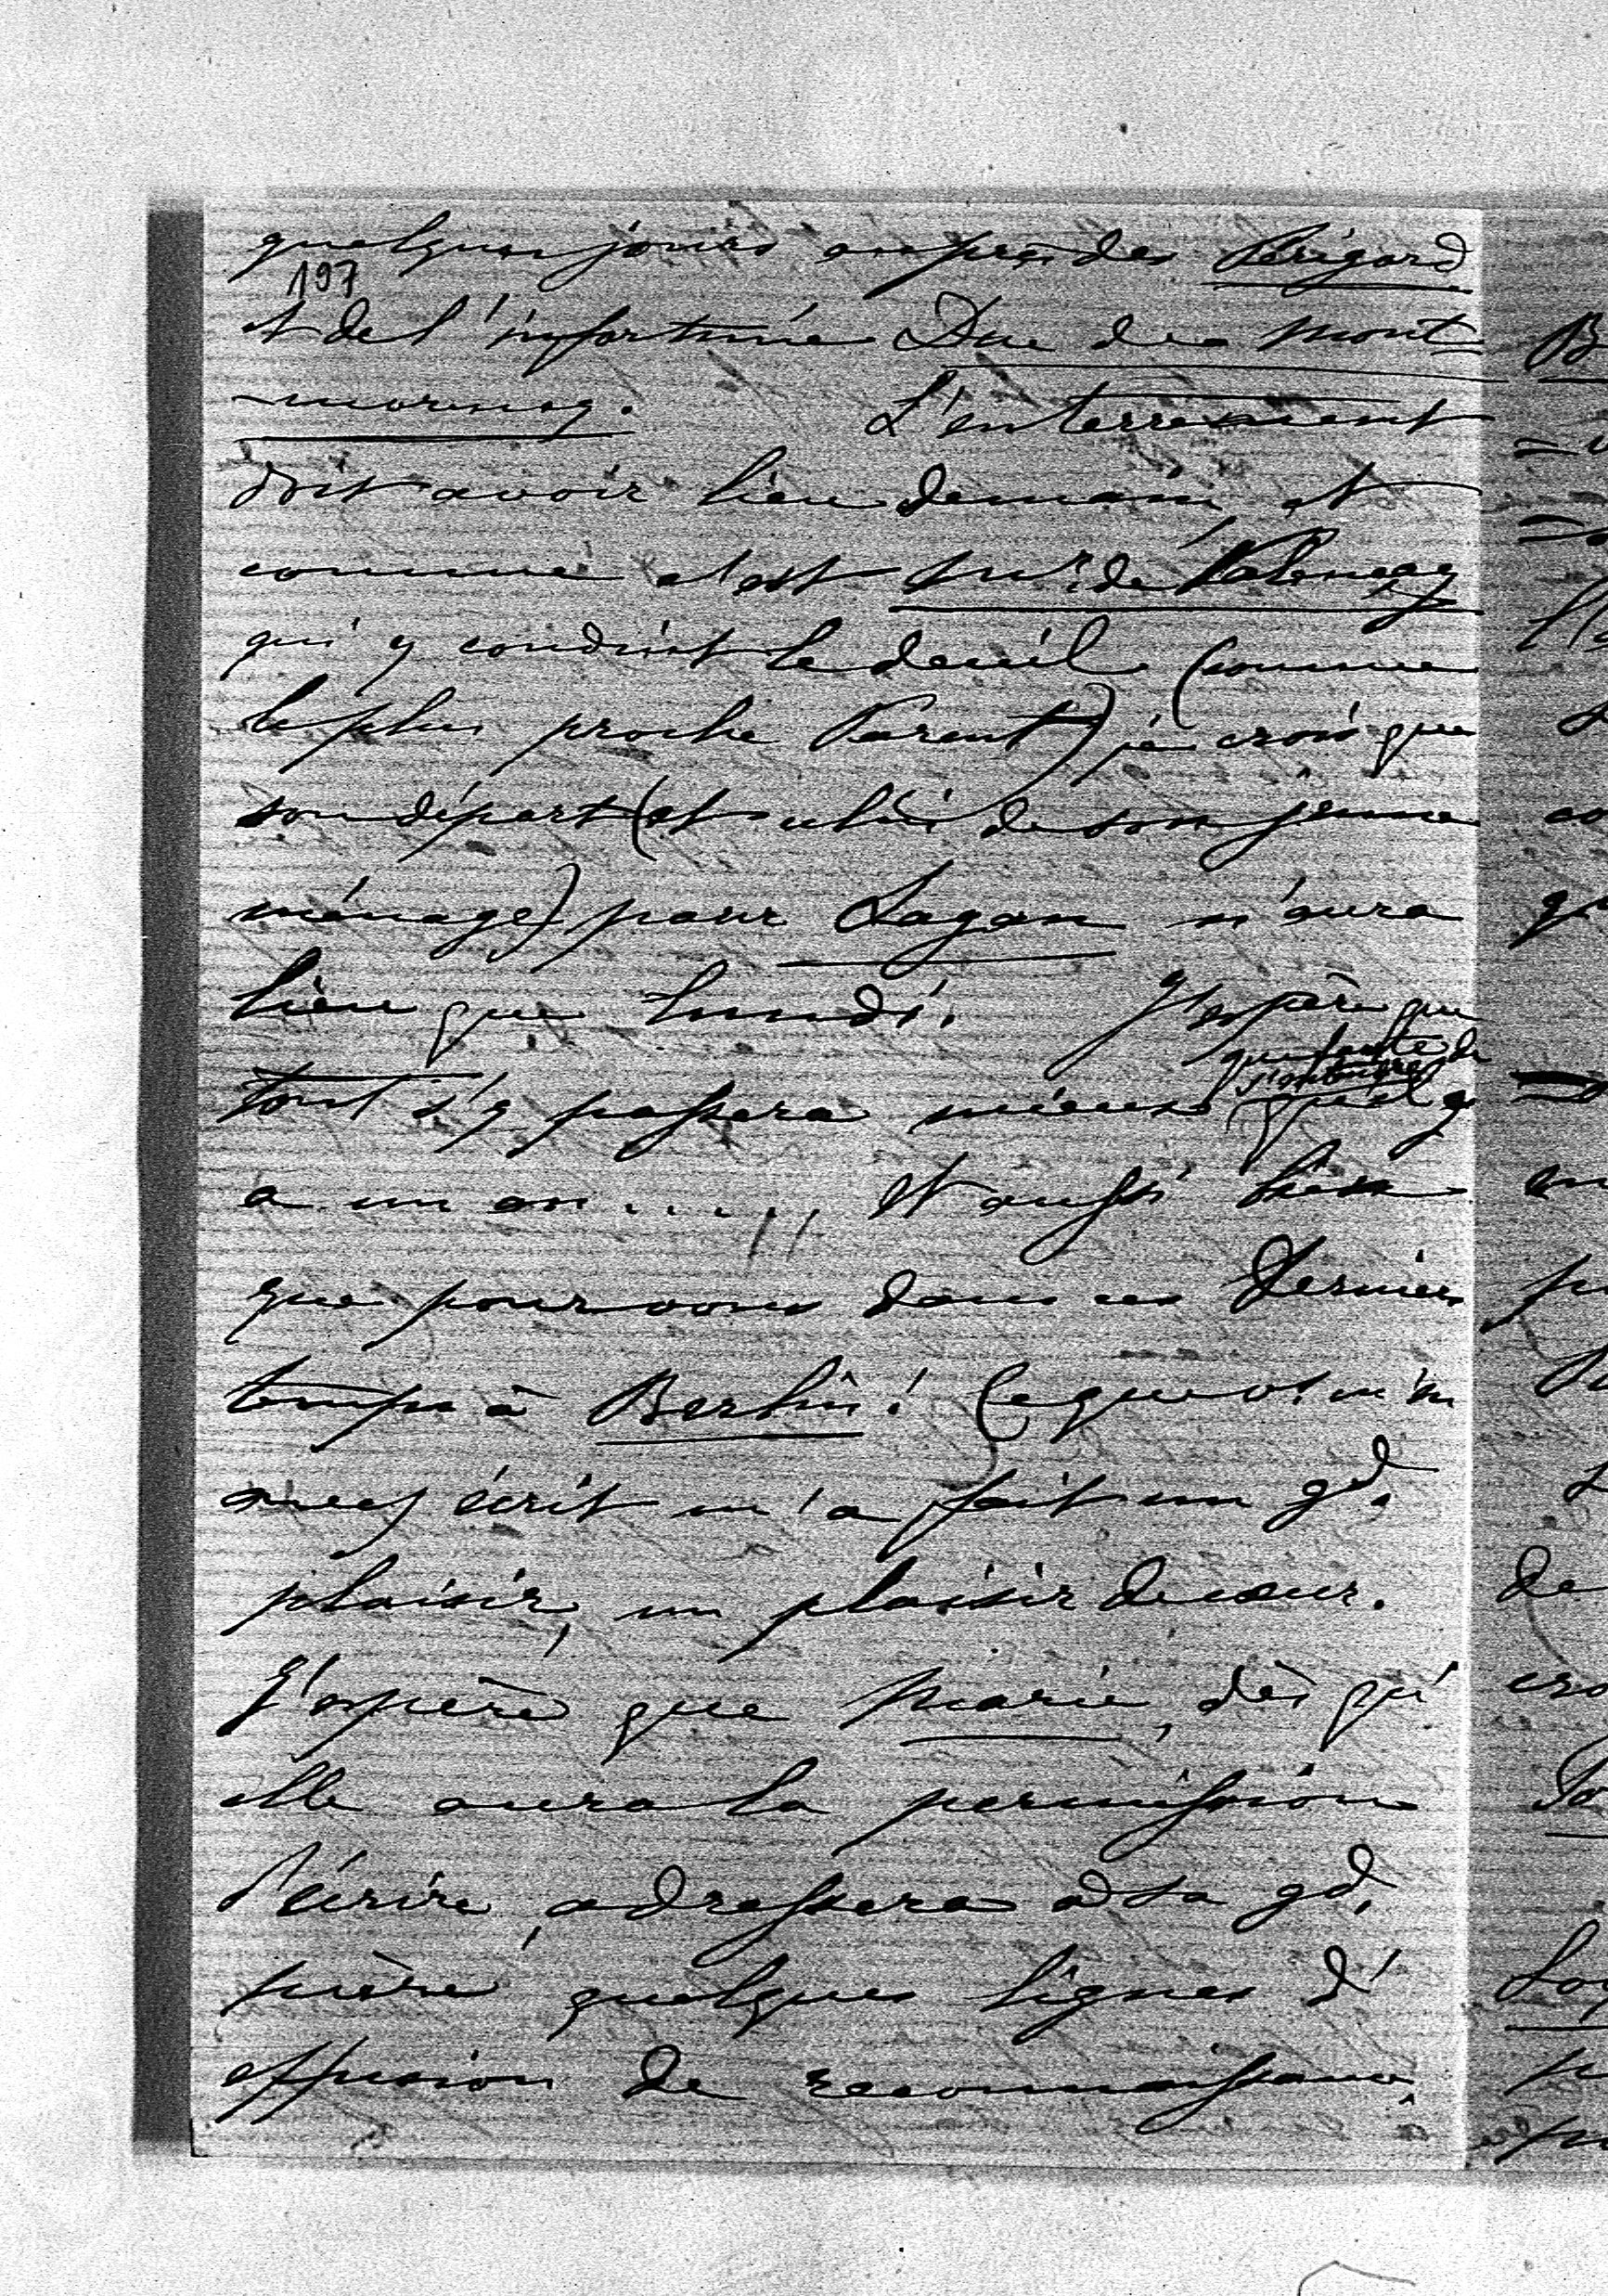 quelques jours auprès des Périgord
197
et de l'infortuné Duc de Mont-
morency. L'enterrement
doit avoir lieu demain, et
comme c'est Mr. de Valençay
qui y conduit le deuil (comme
le plus proche Parent) je crois que
son départ (et celui de son jeune
ménage) pour Sagan n'aura
lieu que lundi. J'espère que
tout s'y passera mieux qu'il y
a un an..... et aussi bien
que pour vous dans ces derniers
temps à Berlin! Ce que vs. m'en
avez écrit m'a fait un gd.
plaisir, un plaisir de cœur.
J'espère que Marie, dès qu'
elle aura la permission
d'écrire, adressera à sa gd.
mère quelques lignes d'
effusion de reconnaissance,